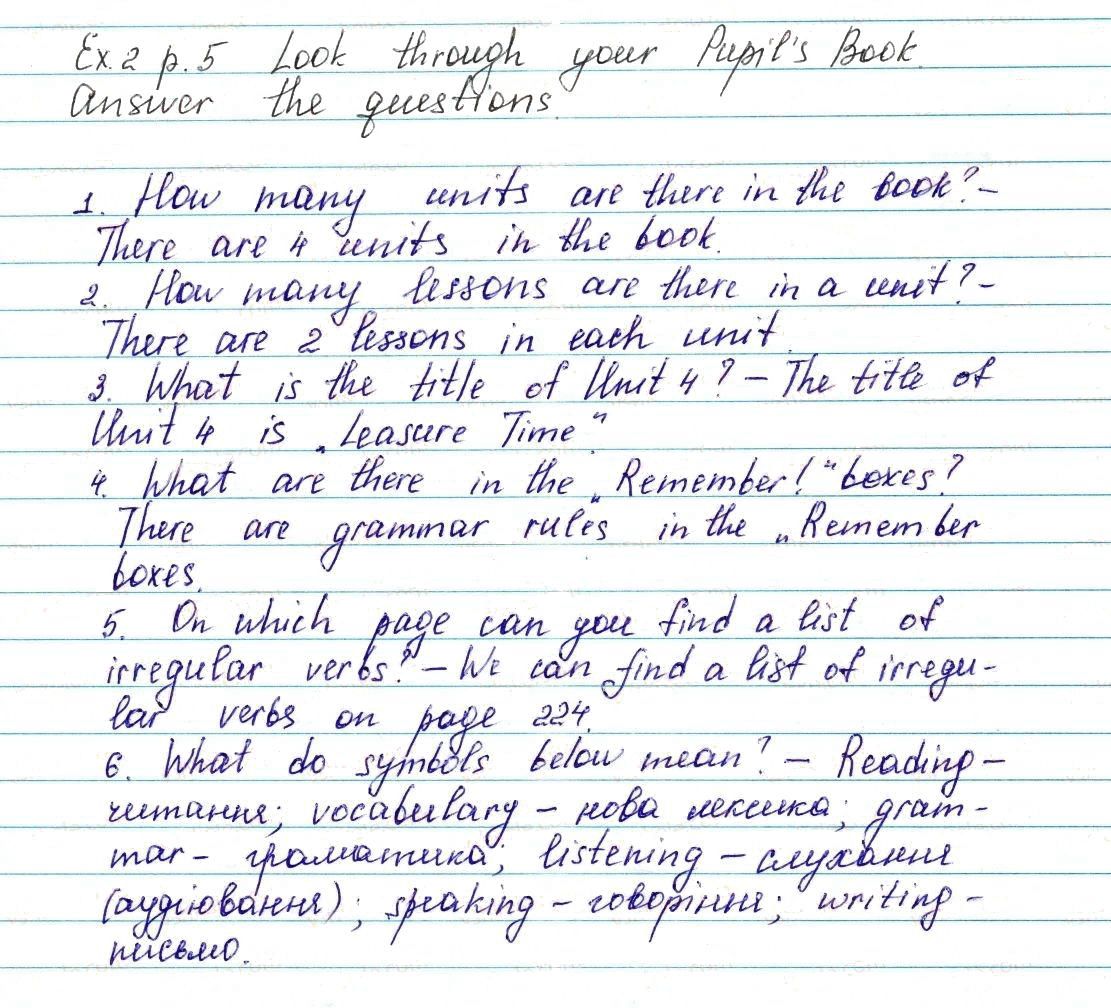 Ex. 2 p. 5 Look through your Pupil's Book.
Answer the questions.
1. How many units are there in the book? –
There are 4 units in the book.
2. How many lessons are there in a unit? –
There are 2 lessons in each unit.
3. What is the title of Unit 4? – The title of
Unit 4 is „Leasure Time“
4. What are there in the „Remember!“ boxes?
There are grammar rules in the „Remember
boxes.
5. On which page can you find a list of
irregular verbs? – We can find a list of irregu-
lar verbs on page 224.
6. What do symbols below mean? – Reading –
читання; vocabulary – нова лексика; gram-
mar – граматика; listening – слухання
(аудіювання); speaking – говоріння; writing –
письмо.